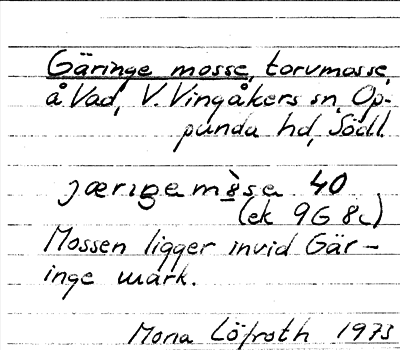 Gäringe mosse, torvmosse,
å Vad, V. Vingåkers sn, Op-
punda hd, Södl.
jæriŋem8̤̀sa 40
(ek 9G 8c)
Mossen ligger invid Gär-
inge mark.
Mona Löfroth 1973